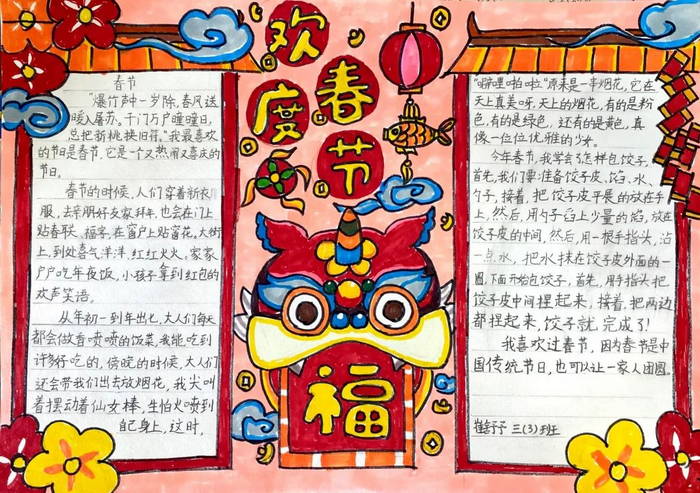 欢度
春节
春节
"爆竹声中一岁除,春风送
暖入屠苏。千门万户曈曈日,
总把新桃换旧符。"我最喜欢
的节日是春节,它是一个又热闹又喜庆的
节日。
春节的时候,人们穿着新衣
服,去亲朋好友家拜年,也会在门上
贴春联、福字,在窗户上贴窗花,大街
上,到处喜气洋洋,红红火火,家家
户户吃年夜饭,小孩子拿到红包的
欢声笑语。
从年初一到年出七,大人们每天
都会做香喷喷的饭菜,我能吃到
许多好吃的,傍晚的时候,大人们
还会带我们出去放烟花,我尖叫
着摆动着仙女棒,生怕火喷到
自己身上,这时,
福
"噼哩啪啦"原来是一串烟花,它在
天上真美呀,天上的烟花,有的是粉
色,有的是绿色,还有的是黄色,真
像一位位优雅的少女。
今年春节,我学会了怎样包饺子,
首先,我们要准备饺子皮、馅、水、
勺子,接着,把饺子皮平展的放在手
上,然后,用勺子舀上少量的馅,放在
饺子皮的中间,然后,用一根手指头,沾
一点水,把水抹在饺子皮外面的一
圈,下面开始包饺子,首先,用手指头把
饺子皮中间捏起来,接着,把两边
都捏起来,饺子就完成了!
我喜欢过春节,因为春节是中
国传统节日,也可以让一家人团圆。
三(3)班